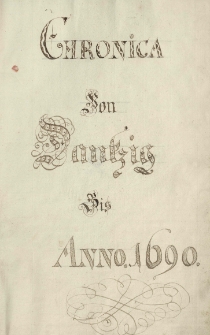 CHRONICA
Von
Dantzig
Bis
ANNO. 1690.